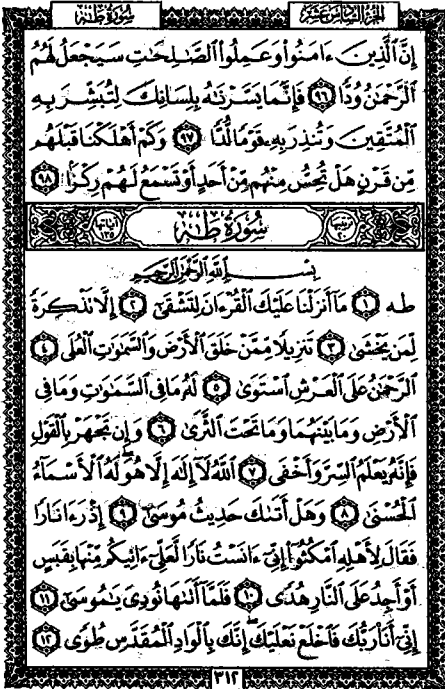 الجزء السادس عشر سورة طه
إِنَّ ٱلَّذِينَ ءَامَنُوا۟ وَعَمِلُوا۟ ٱلصَّٰلِحَٰتِ سَيَجْعَلُ لَهُمُ
ٱلرَّحْمَٰنُ وُدًّا ٩٦ فَإِنَّمَا يَسَّرْنَٰهُ بِلِسَانِكَ لِتُبَشِّرَ بِهِ
ٱلْمُتَّقِينَ وَتُنذِرَ بِهِۦ قَوْمًا لُّدًّا ٩٧ وَكَمْ أَهْلَكْنَا قَبْلَهُم
مِّن قَرْنٍ هَلْ تُحِسُّ مِنْهُم مِّنْ أَحَدٍ أَوْ تَسْمَعُ لَهُمْ رِكْزًۢا ٩٨
ترتيبها ٢٠ سورة طه آياتها ١٣٥
بِسْمِ ٱللَّهِ ٱلرَّحْمَٰنِ ٱلرَّحِيمِ
طه ١ مَآ أَنزَلْنَا عَلَيْكَ ٱلْقُرْءَانَ لِتَشْقَىٰٓ ٢ إِلَّا تَذْكِرَةً
لِّمَن يَخْشَىٰ ٣ تَنزِيلًا مِّمَّنْ خَلَقَ ٱلْأَرْضَ وَٱلسَّمَٰوَٰتِ ٱلْعُلَى ٤
ٱلرَّحْمَٰنُ عَلَى ٱلْعَرْشِ ٱسْتَوَىٰ ٥ لَهُۥ مَا فِى ٱلسَّمَٰوَٰتِ وَمَا فِى
ٱلْأَرْضِ وَمَا بَيْنَهُمَا وَمَا تَحْتَ ٱلثَّرَىٰ ٦ وَإِن تَجْهَرْ بِٱلْقَوْلِ
فَإِنَّهُۥ يَعْلَمُ ٱلسِّرَّ وَأَخْفَى ٧ ٱللَّهُ لَآ إِلَٰهَ إِلَّا هُوَ لَهُ ٱلْأَسْمَآءُ
ٱلْحُسْنَىٰ ٨ وَهَلْ أَتَىٰكَ حَدِيثُ مُوسَىٰٓ ٩ إِذْ رَءَا نَارًا
فَقَالَ لِأَهْلِهِ ٱمْكُثُوٓا۟ إِنِّىٓ ءَانَسْتُ نَارًا لَّعَلِّىٓ ءَاتِيكُم مِّنْهَا بِقَبَسٍ
أَوْ أَجِدُ عَلَى ٱلنَّارِ هُدًى ١٠ فَلَمَّآ أَتَىٰهَا نُودِىَ يَٰمُوسَىٰٓ ١١
إِنِّىٓ أَنَا۠ رَبُّكَ فَٱخْلَعْ نَعْلَيْكَ إِنَّكَ بِٱلْوَادِ ٱلْمُقَدَّسِ طُوًى ١٢
٣١٢